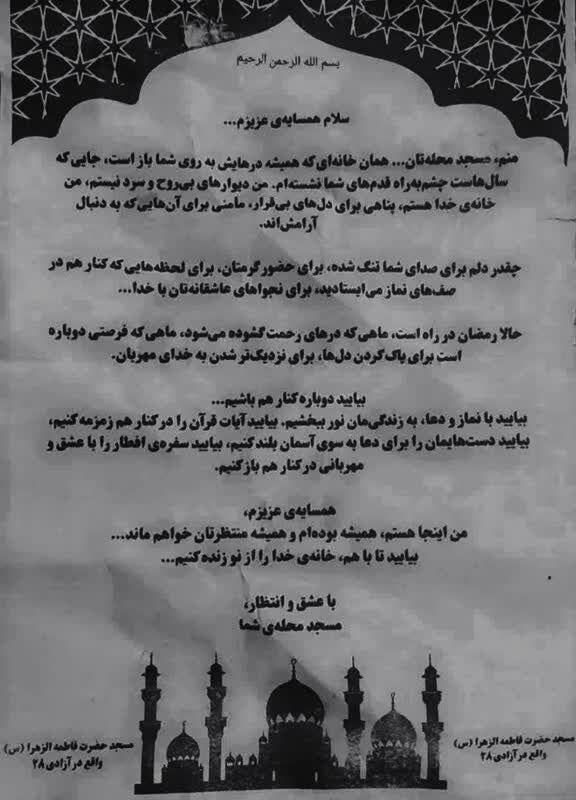 بسم الله الرحمن الرحیم
سلام همسایه‌ی عزیزم...
منم، مسجد محله‌تان... همان خانه‌ای که همیشه درهایش به روی شما باز است، جایی که
سال‌هاست چشم‌به‌راه قدم‌های شما نشسته‌ام. من دیوارهای بی‌روح و سرد نیستم، من
خانه‌ی خدا هستم، پناهی برای دل‌های بی‌قرار، مأمنی برای آن‌هایی که به دنبال
آرامش‌اند.
چقدر دلم برای صدای شما تنگ شده، برای حضور گرمتان، برای لحظه‌هایی که کنار هم در
صف‌های نماز می‌ایستادید، برای نجواهای عاشقانه‌تان با خدا...
حالا رمضان در راه است، ماهی که درهای رحمت گشوده می‌شود، ماهی که فرصتی دوباره
است برای پاک کردن دل‌ها، برای نزدیک‌تر شدن به خدای مهربان.
بیایید دوباره کنار هم باشیم...
بیایید با نماز و دعا، به زندگی‌مان نور ببخشیم. بیایید آیات قرآن را در کنار هم زمزمه کنیم،
بیایید دست‌هایمان را برای دعا به سوی آسمان بلند کنیم، بیایید سفره‌ی افطار را با عشق و
مهربانی در کنار هم باز کنیم.
همسایه‌ی عزیزم،
من اینجا هستم، همیشه بوده‌ام و همیشه منتظرتان خواهم ماند...
بیایید تا با هم، خانه‌ی خدا را از نو زنده کنیم...
با عشق و انتظار،
مسجد محله‌ی شما
مسجد حضرت فاطمه الزهرا (س)
واقع در آزادی ۲۸
مسجد حضرت فاطمه الزهرا (س)
واقع در آزادی ۲۸